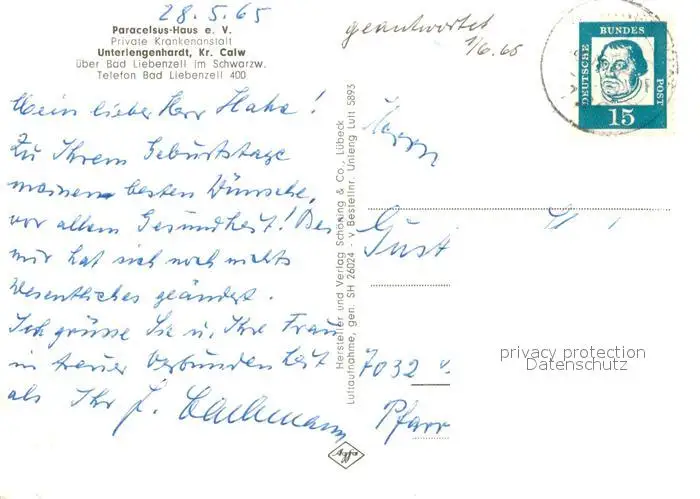 28.5.65
Paracelsus-Haus e. V.
Private Krankenanstalt
Unterlengenhardt, Kr. Calw
Über Bad Liebenzell im Schwarzw.
Telefon Bad Liebenzell 400
geantwortet
1/6.65
DEUTSCHE BUNDES POST
15
Mein lieber Herr Hahn!
Zu Ihrem Geburtstage
meinen besten Wünsche,
vor allem Gesundheit! Bei
mir hat sich noch nichts
wesentliches geändert.
Ich grüsse Sie u. Ihre Frau
in treuer Verbundenheit
als Ihr J.
Hersteller und Verlag Schöning & Co., Lübeck
Luftaufnahme, gen: SH 26024 - v Bestellnr. Unleng Luft 5893
Herrn
Gust
7032
Pfarr
privacy protection
Datenschutz
Agfa